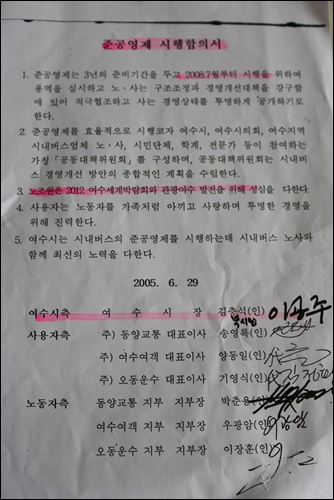 준공영제 시행합의서
1. 준공영제는 3년의 준비기간을 두고 2008.7월부터 시행을 위하여
용역을 실시하고 노·사는 구조조정과 경영개선대책을 강구함
에 있어 적극협조하고 사는 경영상태를 투명하게 공개하기로
한다.
2. 준공영제를 효율적으로 시행코자 여수시, 여수시의회, 여수지역
시내버스업체 노·사, 시민단체, 학계, 전문가 등이 참여하는
가칭「공동대책위원회」를 구성하며, 공동대책위원회는 시내버
스 경영개선 방안의 종합적인 계획을 수립한다.
3. 노조원은 2012 여수세계박람회와 관광여수 발전을 위해 성심을 다한다.
4. 사용자는 노동자를 가족처럼 아끼고 사랑하며 투명한 경영을
위해 진력한다.
5. 여수시는 시내버스의 준공영제를 시행하는데 시내버스 노사와
함께 최선의 노력을 다한다.
2005. 6. 29
여수시측 여 수 시 장 김충석(인) 이승주
부시장
사용자측 주) 동양교통 대표이사 송영록(인)
주) 여수여객 대표이사 양동일(인)
주) 오동운수 대표이사 기영식(인)
노동자측 동양교통 지부 지부장 박춘용(인)
여수여객 지부 지부장 우광암(인)
오동운수 지부 지부장 이장훈(인)